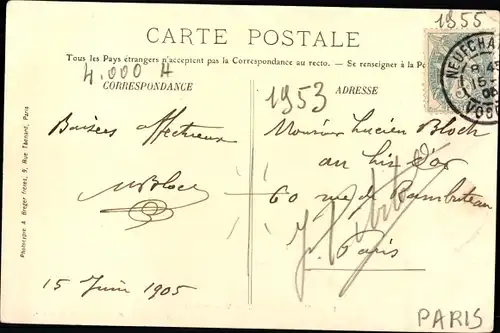 1955
CARTE POSTALE
Tous les Pays étrangers n'acceptent pas la Correspondance au recto. — Se renseigner à la Po
4.000 A
CORRESPONDANCE
1953
ADRESSE
NEUFCHA
VOSG
Baisers affectueux
MBloch
15 Juin 1905
Monsieur Lucien Bloch
au lis d'or
60 rue de Rambuteau
Paris
PARIS
Phototypie A. Breger Frères, 9, Rue Thénard, Paris